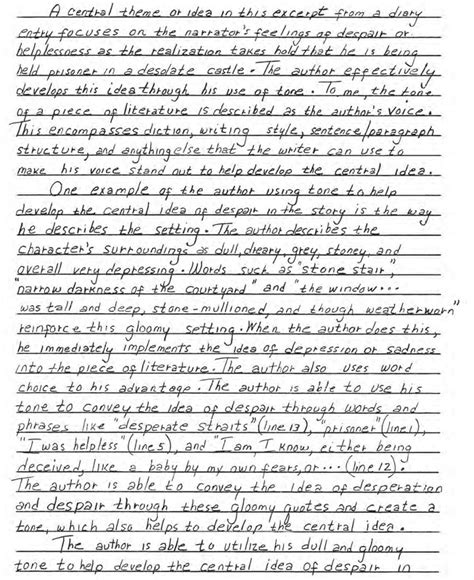 A central theme or idea in this excerpt from a diary
entry focuses on the narrator's feelings of despair or
helplessness as the realization takes hold that he is being
held prisoner in a desolate castle. The author effectively
develops this idea through his use of tone. To me, the tone
of a piece of literature is described as the author's voice.
This encompasses diction, writing style, sentence/paragraph
structure, and anything else that the writer can use to
make his voice stand out to help develop the central idea.
One example of the author using tone to help
develop the central idea of despair in the story is the way
he describes the setting. The author describes the
character's surroundings as dull, dreary, grey, stoney, and
overall very depressing. Words such as "stone stair",
"narrow darkness of the courtyard" and "the window...
was tall and deep, stone-mullioned, and though weatherworn"
reinforce this gloomy setting. When the author does this,
he immediately implements the idea of depression or sadness
into the piece of literature. The author also uses word
choice to his advantage. The author is able to use his
tone to convey the idea of despair through words and
phrases like "desperate straits" (line 13), "prisoner" (line 1),
"I was helpless" (line 5), and "I am, I know, either being
deceived, like a baby by my own fears, or... (line 12).
The author is able to convey the idea of desperation
and despair through these gloomy quotes and create a
tone, which also helps to develop the central idea.
The author is able to utilize his dull and gloomy
tone to help develop the central idea of despair in